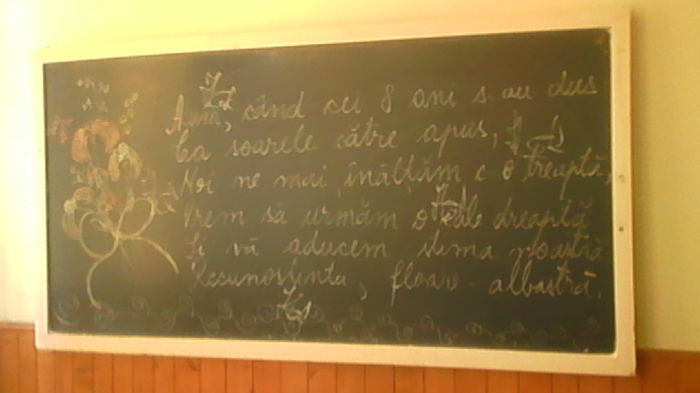 Acum, când cei 8 ani s-au dus
Ca soarele către apus,
Noi ne mai înălțăm c-o treaptă,
Vrem să urmăm o cale dreaptă
Și vă aducem stima noastră
Recunoștința, floare-albastră.